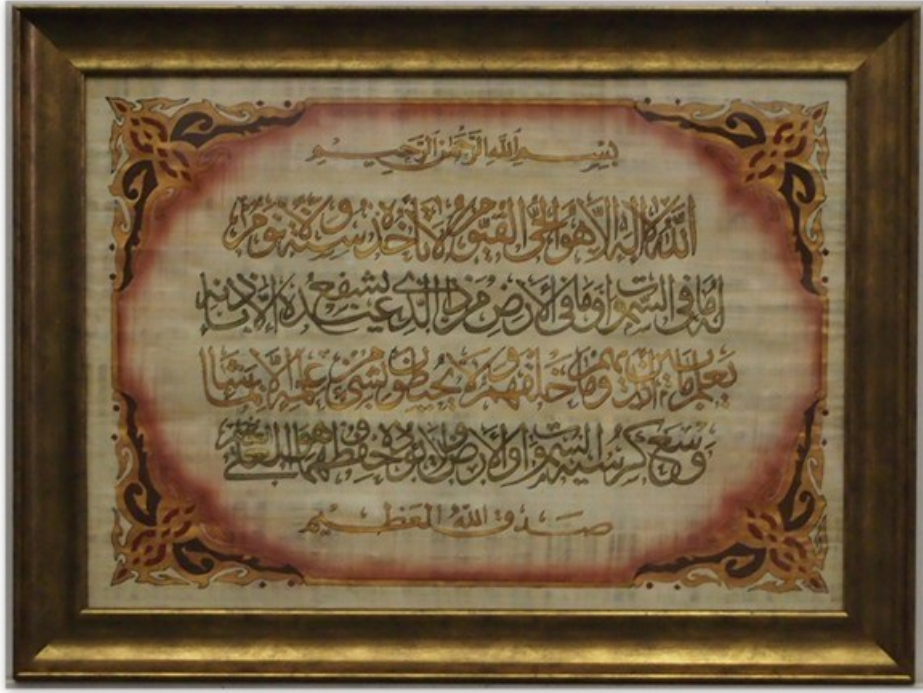 بسم الله الرحمن الرحيم
الله لا إله إلا هو الحي القيوم لا تأخذه سنة ولا نوم
له ما في السموات وما في الأرض من ذا الذي يشفع عنده إلا بإذنه
يعلم ما بين أيديهم وما خلفهم ولا يحيطون بشيء من علمه إلا بما شاء
وسع كرسيه السموات والأرض ولا يؤده حفظهما وهو العلي العظيم
صدق الله العظيم